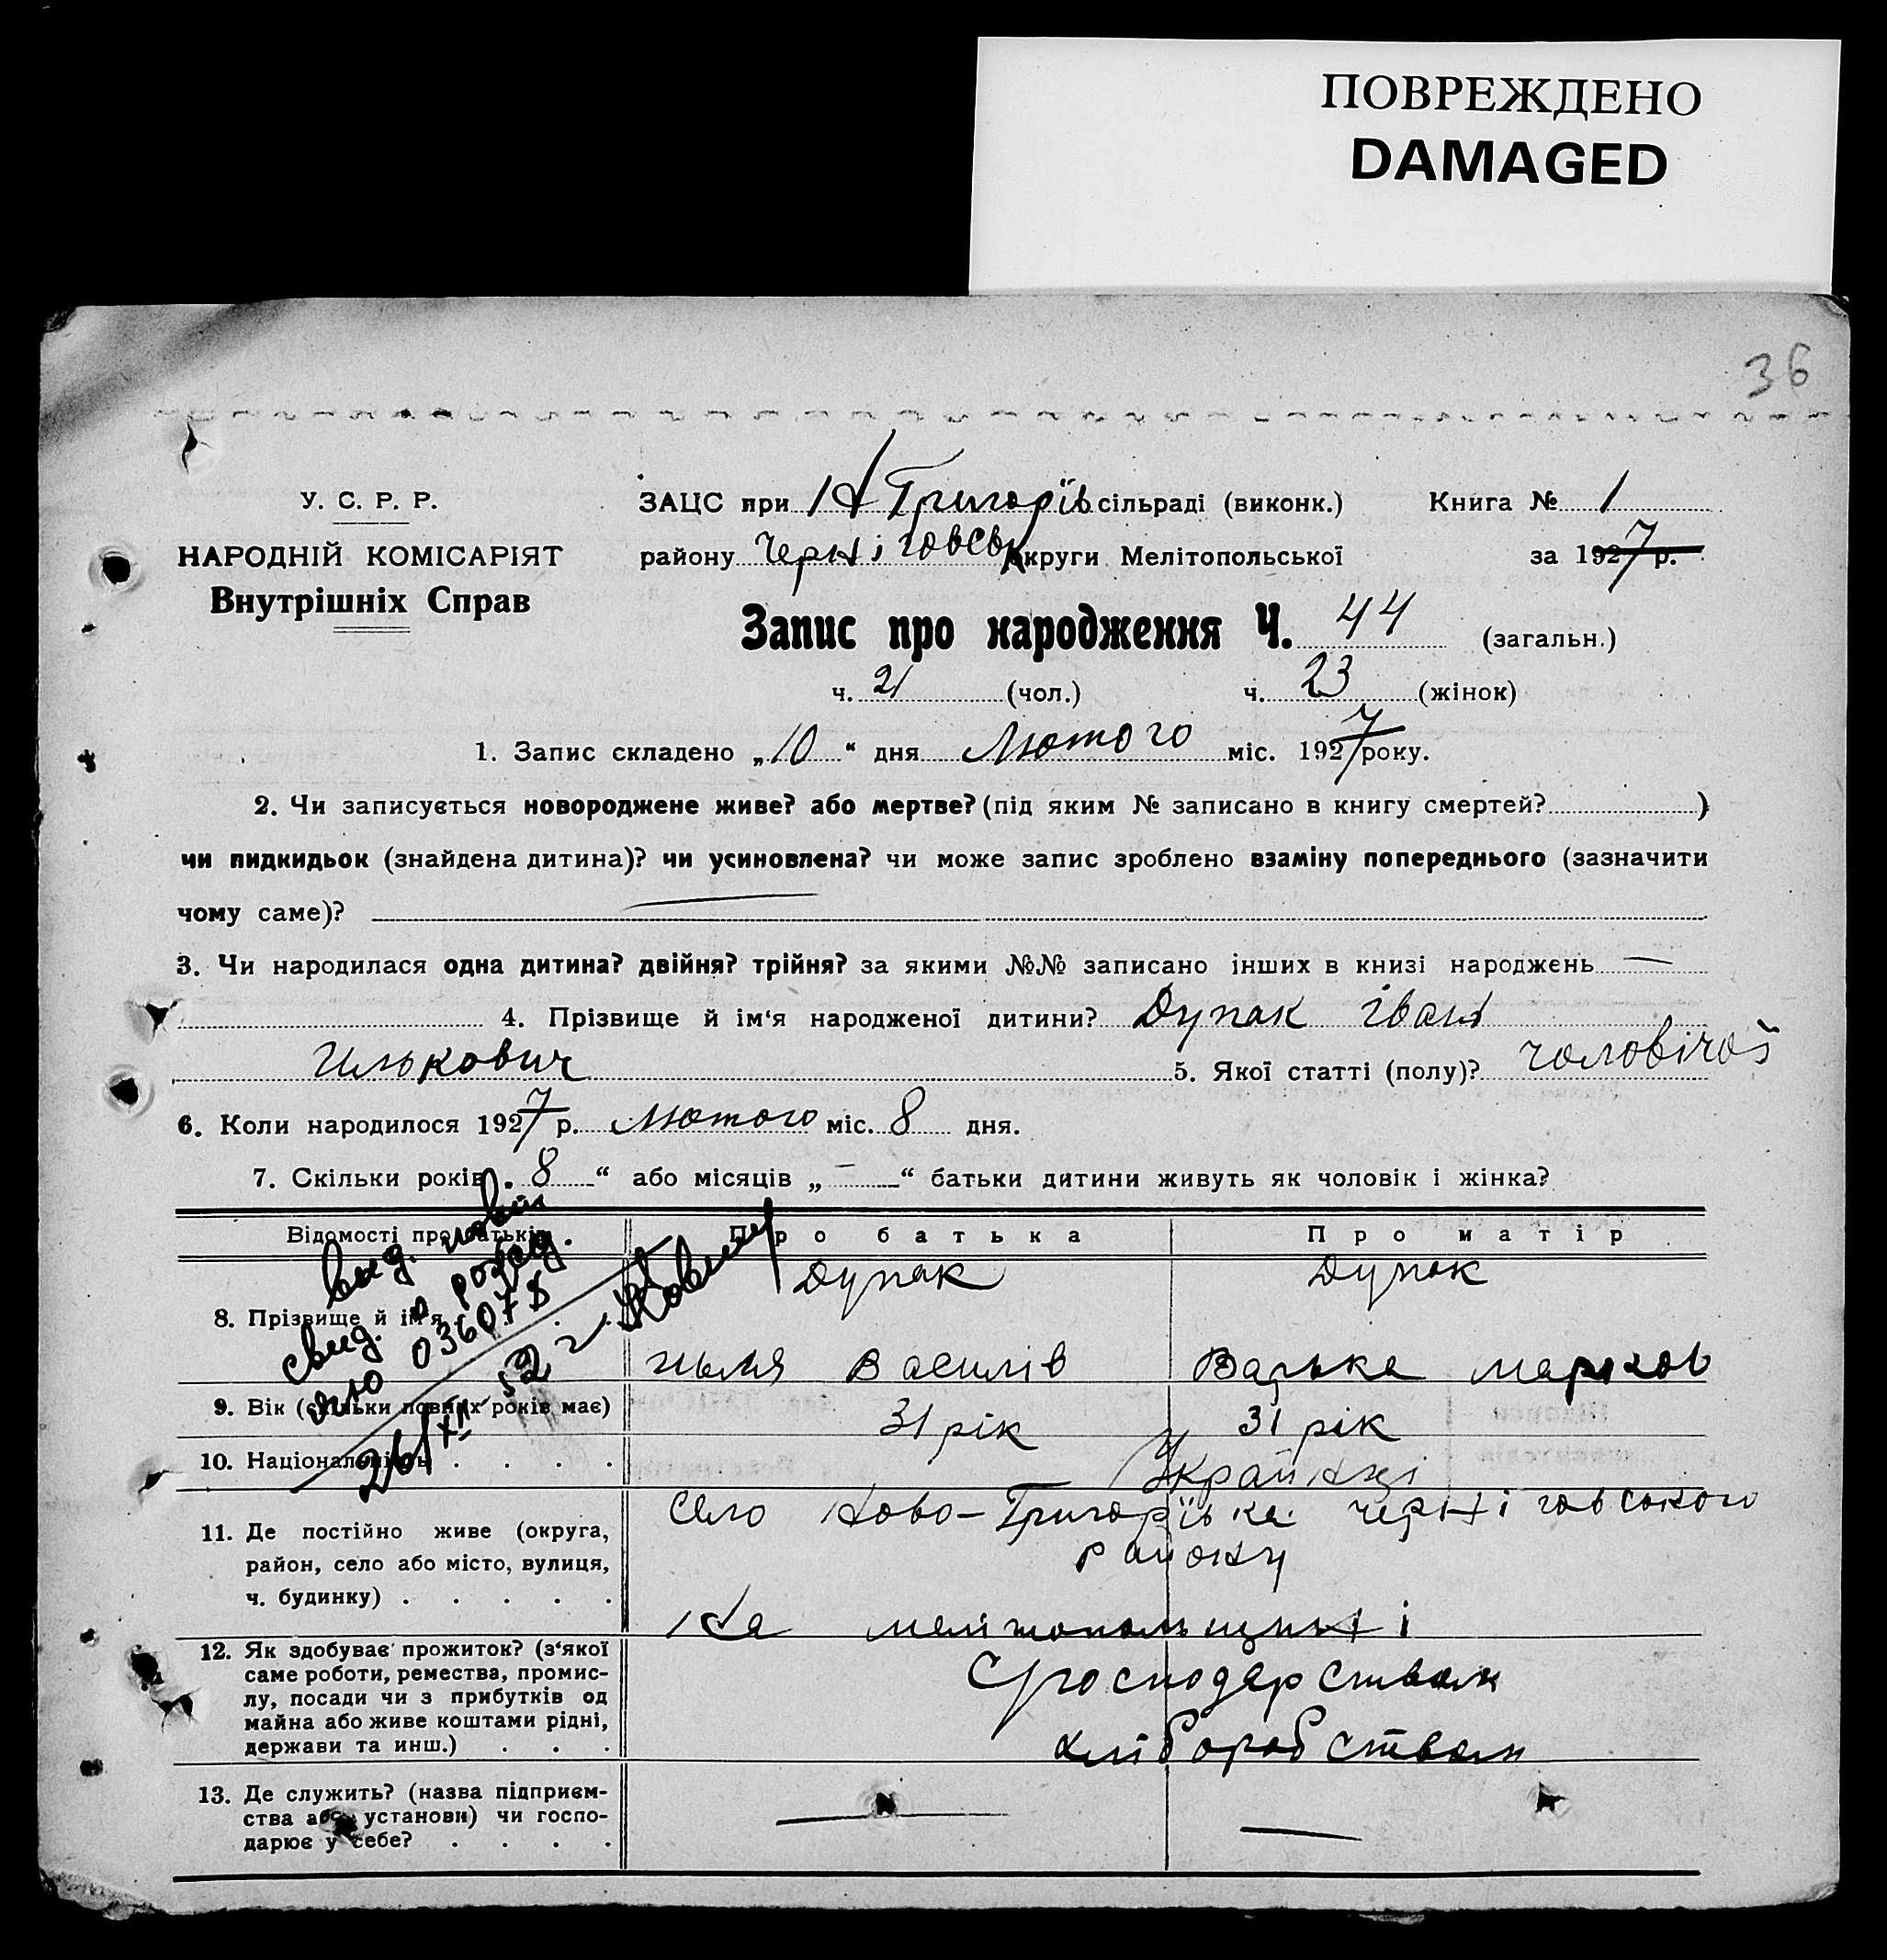 ПОВРЕЖДЕНО
DAMAGED
36
У. С. Р. Р.
НАРОДНІЙ КОМІСАРІЯТ
Внутрішніх Справ
ЗАЦС при Н Григорїв сільраді (виконк.) Книга № 1
району Черніговськ округи Мелітопольської за 1927 р.
Запис про народження Ч. 44 (загальн.)
ч. 21 (чол.) ч. 23 (жінок)
1. Запис складено „10“ дня Лютого міс. 1927 року.
2. Чи записується новороджене живе? або мертве? (під яким № записано в книгу смертей? )
чи пидкидьок (знайдена дитина)? чи усиновлена? чи може запис зроблено взаміну попереднього (зазначити
чому саме)?
3. Чи народилася одна дитина? двійня? трійня? за якими №№ записано інших в книзі народжень —
4. Прізвище й ім‘я народженої дитини? Дупак Іван
Илькович 5. Якої статті (полу)? чоловічої
6. Коли народилося 1927 р. Лютого міс. 8 дня.
7. Скільки років „8“ або місяців „—“ батьки дитини живуть як чоловік і жінка?
Відомості про батьків. Про батька Про матір
8. Прізвище й ім‘я Дупак Дупак
Илля Василів Варька Марков
9. Вік (скільки повних років має) 31 рік 31 рік
10. Національність . . . . Українці
11. Де постійно живе (округа,
район, село або місто, вулиця,
ч. будинку) . . . . .
Село Ново-Григорївка Черніговського
району
На Мелітопольщині
12. Як здобуває прожиток? (з‘якої
саме роботи, ремества, промис-
лу, посади чи з прибутків од
майна або живе коштами рідні,
держави та инш.) . . .
Господарством
хліборобством
13. Де служить? (назва підприєм-
ства або установи) чи госпо-
дарює у себе? . . . .
— —
выд. новой
свид. о рожд
036078
26/XII 52 г